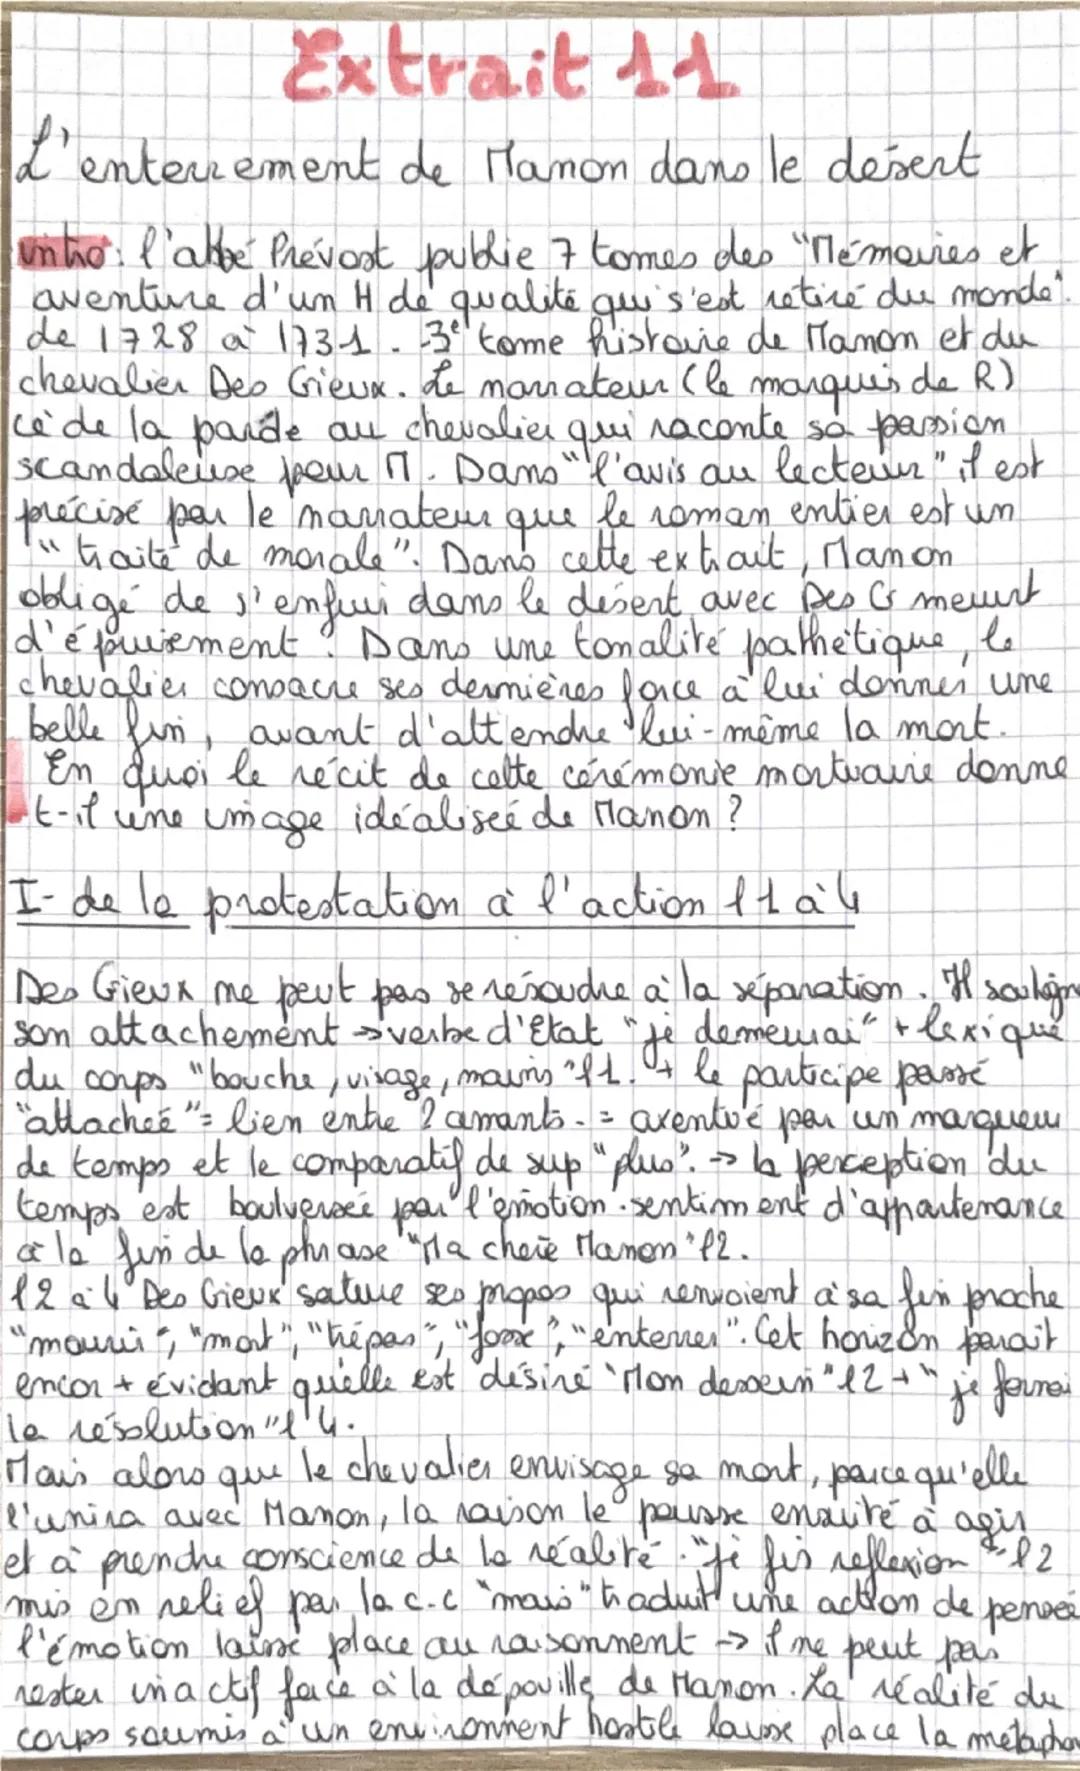 Extrait 11
L'enterrement de Manon dans le désert
intro : l'abbé Prévost publie 7 tomes des "Mémoires et
aventure d'un H de qualité qui s'est retiré du monde".
de 1728 à 1731. 3e tome histoire de Manon et du
chevalier Des Grieux. Le narrateur (le marquis de R)
cède la parole au chevalier qui raconte sa passion
scandaleuse pour M. Dans "l'avis au lecteur" il est
précisé par le narrateur que le roman entier est un
"traité de morale". Dans cette extrait, Manon
obligé de s'enfuir dans le désert avec Des G meurt
d'épuisement. Dans une tonalité pathétique, le
chevalier consacre ses dernières force à lui donner une
belle fin, avant d'attendre lui-même la mort.
En quoi le récit de cette cérémonie mortuaire donne
t-il une image idéalisée de Manon ?
I- de la protestation à l'action l1 à 4
Des Grieux ne peut pas se résoudre à la séparation. Il souligne
son attachement → verbe d'Etat "je demeurai" + lexique
du corps "bouche, visage, mains" l1. + le participe passé
"attachée" = lien entre 2 amants. = axentué par un marqueur
de temps et le comparatif de sup "plus". → la perception du
temps est boulversée par l'émotion. sentiment d'appartenance
à la fin de la phrase "Ma chère Manon" l2.
l2 à 4 Des Grieux sature ses propos qui renvoient à sa fin proche
"mourir", "mort", "trépas", "fosse", "enterrer". Cet horizon parait
encor + évidant quelle est désiré "Mon dessein" l2 + "je formai
la résolution" l4.
Mais alors que le chevalier envisage sa mort, parce qu'elle
l'unira avec Manon, la raison le pousse ensuite à agir
et à prendre conscience de la réalité. "je fis reflexion" l2
mis en relief par la c.c "mais" traduit une action de pensée
l'émotion laisse place au raisonnent → il ne peut pas
rester inactif face à la dépouille de Manon. La réalité du
corps soumis à un environment hostile laisse place la métaphor